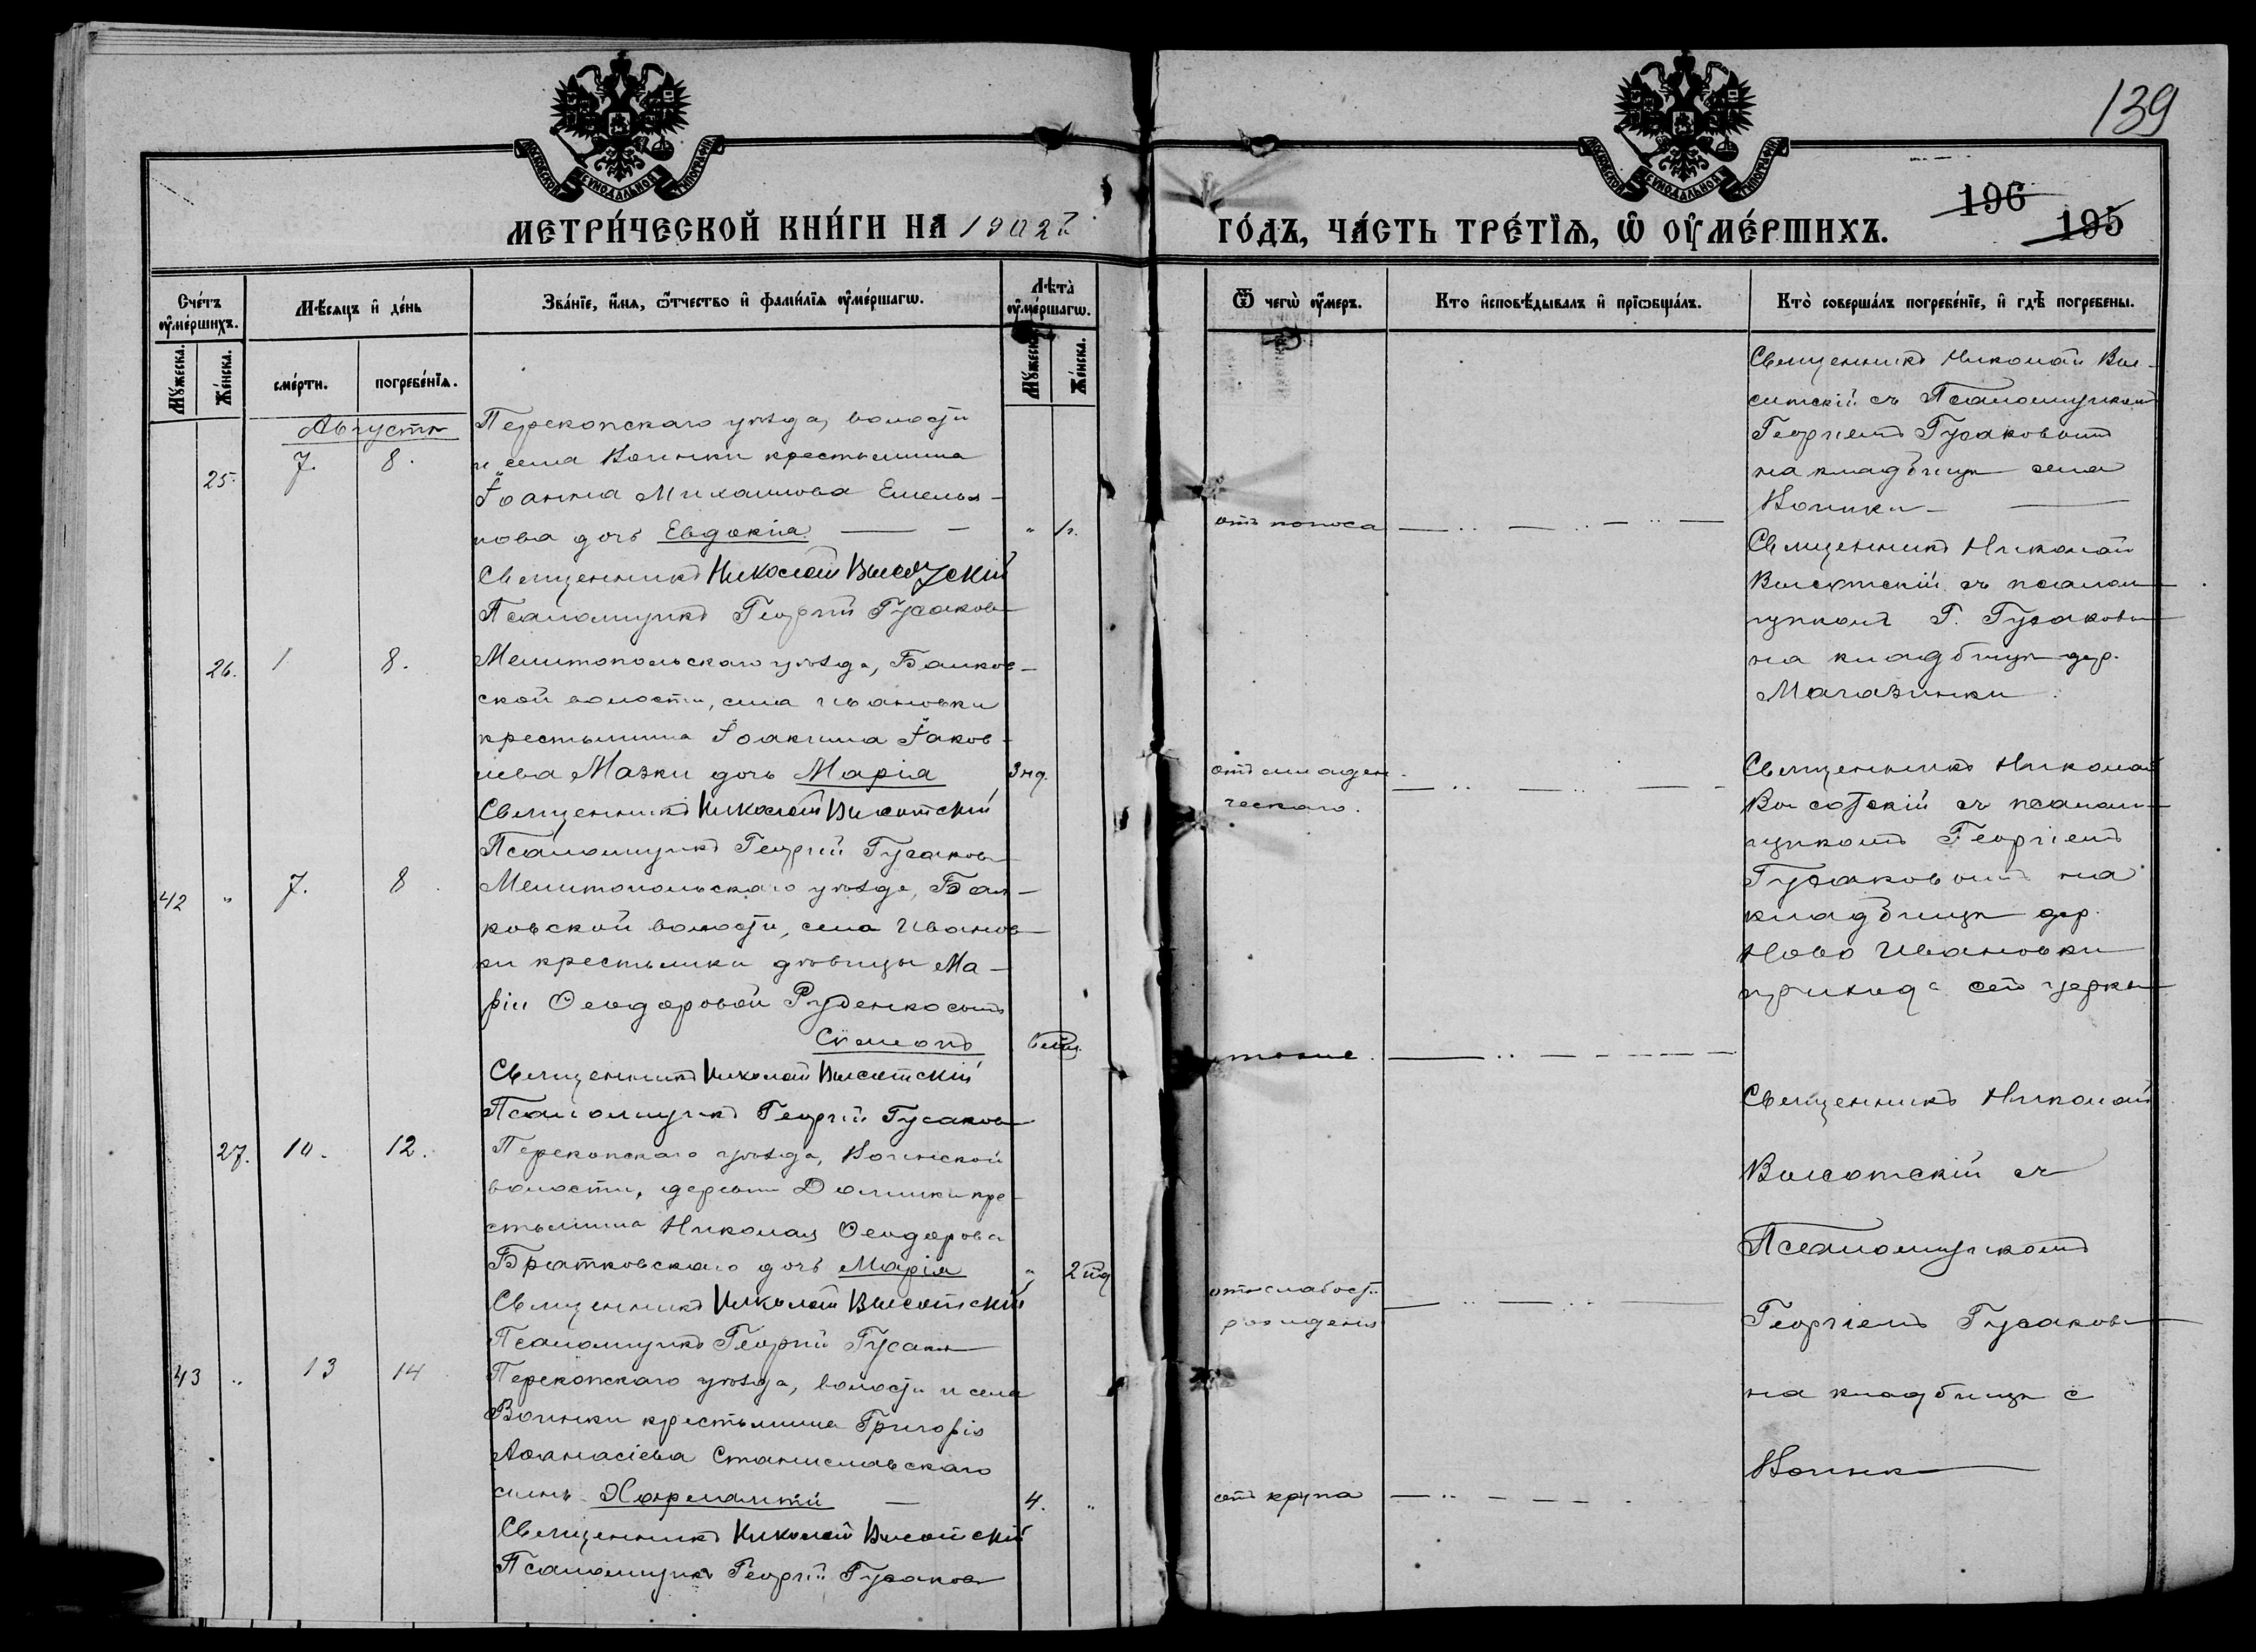 139
МОСКОВСКОЙ СѴНОДАЛЬНОЙ ТИПОГРАФІИ
МОСКОВСКОЙ СѴНОДАЛЬНОЙ ТИПОГРАФІИ
МЕТРИ́ЧЕСКОЙ КНИ́ГИ НА 1902 й
ГО́ДЪ, ЧА́СТЬ ТРЕ́ТЇѦ, Ѡ҆ ОУ҆МЕ́РШИХЪ.
196
195
Сче́тъ оу҆ме́ршихъ.
Мꙋ́жеска.
Же́нска.
Мѣ́сѧцъ и҆ де́нь
сме́рти.
погребе́нїѧ.
Зва́нїе, и҆́мѧ, ѻ҆́тчество и҆ фами́лїѧ оу҆ме́ршагѡ.
Лѣ́та оу҆ме́ршагѡ.
Мꙋ́жеска.
Же́нска.
Ѿ чегѡ̀ оу҆́меръ.
Кто̀ и҆сповѣ́дывалъ и҆ прїѡбща́лъ.
Кто̀ соверша́лъ погребе́нїе, и҆ гдѣ̀ погребены.
Августъ
25. 7. 8.
Перекопскаго уѣзда, волости
и села Воинки крестьянина
Іоанна Михаилова Емелья-
нова дочь Евдокія
" 1 г.
отъ поноса
Священникъ Николай Высотскій
Псаломщикъ Георгій Гусаковъ
Священникъ Николай Вы-
сотскій съ Псаломщикомъ
Георгіемъ Гусаковымъ
на кладбищѣ села
Воинки
26. 1 8.
Мелитопольскаго уѣзда, Балков-
ской волости, села Ивановки
крестьянина Іоакима Іаков-
лева Мазки дочь Марія
3 нд.
отъ младен-
ческаго.
Священникъ Николай Высотскій
Псаломщикъ Георгій Гусаковъ
Священникъ Николай
Высотскій съ псалом-
щикомъ Г. Гусаковымъ
на кладбищѣ дер.
Магазинки
42 " 7. 8.
Мелитопольскаго уѣзда, Бал-
ковской волости, села Иванов-
ки крестьянки дѣвицы Ма-
ріи Ѳеодоровой Руденко сынъ
Сѵмеонъ
тоже
Священникъ Николай Высотскій
Псаломщикъ Георгій Гусаковъ
Священникъ Николай
Высотскій съ псалом-
щикомъ Георгіемъ
Гусаковымъ на
кладбищѣ дер.
Ново Ивановки
прихода сей церкви
27. 10. 12.
Перекопскаго уѣзда, Воинской
волости, деревни Долинки кре-
стьянина Николая Ѳеодорова
Братковскаго дочь Марія
" 2 нд
отъ слабости
рожденія
Священникъ Николай Высотскій
Псаломщикъ Георгій Гусаковъ
Священникъ Николай
Высотскій съ
Псаломщикомъ
Георгіемъ Гусаковымъ
на кладбищѣ с
Воинки
43 " 13 14
Перекопскаго уѣзда, волости и села
Воинки крестьянина Григорія
Аѳанасіева Станиславскаго
сынъ
4. "
отъ крупа
Священникъ Николай Высотскій
Псаломщикъ Георгій Гусаковъ